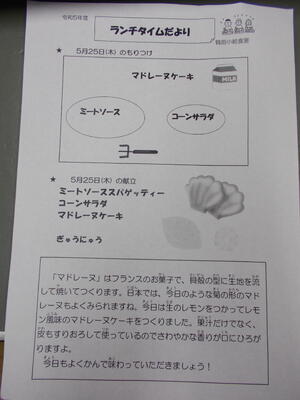 令和5年度
ランチタイムだより
鶴居小給食室
★ 5月25日(木)のもりつけ
マドレーヌケーキ
MILK
ミートソース
コーンサラダ
★ 5月25日(木)の献立
ミートソーススパゲッティー
コーンサラダ
マドレーヌケーキ
ぎゅうにゅう
「マドレーヌ」はフランスのお菓子で、貝殻の型に生地を流
して焼いてつくります。日本では、今日のような菊の形のマド
レーヌもよくみられますね。今日は生のレモンをつかってレモ
ン風味のマドレーヌケーキをつくりました。果汁だけでなく、
皮もすりおろして使っているのでさわやかな香りが口にひろが
りますよ。
今日もよくかんで味わっていただきましょう!